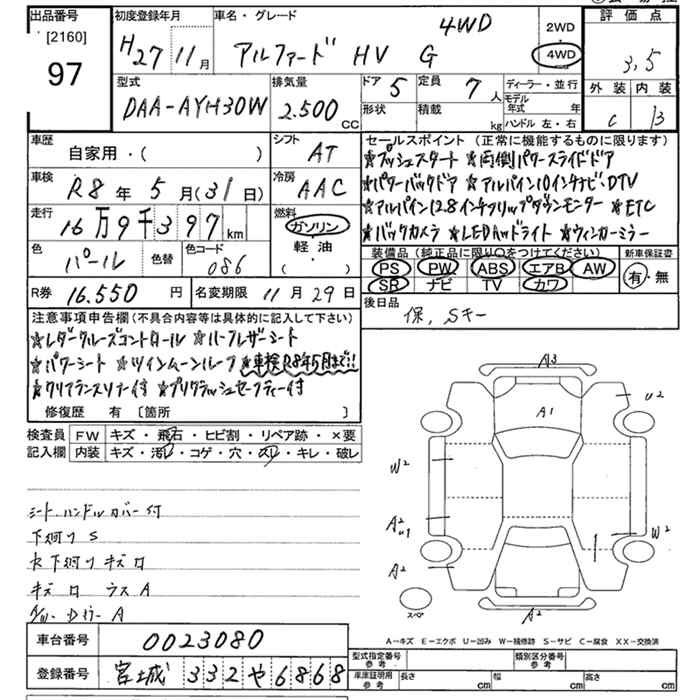 出品番号
[2160]
97
初度登録年月
H27 11月
車名・グレード
アルファード HV G 4WD
2WD
4WD
評価点
3,5
外装 内装
C B
型式
DAA-AYH30W
排気量
2.500 CC
ドア 5
定員 7 人
形状
積載 kg
ディーラー・並行
モデル年式 年
ハンドル 左・右
車歴
自家用・( )
シフト
AT
車検
R8年5月(31日)
冷房
AAC
走行
16万9千397km
燃料
ガソリン
軽油
・( )
色
パール
色替
色コード
086
R券
16.550円
名変期限 11月29日
セールスポイント (正常に機能するものに限ります)
★プッシュスタート ★両側パワースライドドア
★パワーバックドア ★アルパイン10インチナビ・DTV
★アルパイン12.8インチフリップダウンモニター ★ETC
★バックカメラ ★LEDヘッドライト ★ウィンカーミラー
装備品 (純正品に限り○をつけてください)
PS PW ABS エアB AW
SR ナビ TV カワ
新車保証書
有・無
後日品
保、Sキー
注意事項申告欄 (不具合内容等は具体的に記入して下さい)
★レーダークルーズコントロール ★ハーフレザーシート
★パワーシート ★ツインムーンルーフ ★車検R8年5月まで!!
★クリアランスソナー付 ★プリクラッシュセーフティー付
修復歴 有 〔箇所 〕
検査員記入欄
FW キズ・飛石・ヒビ割・リペア跡・×要
内装 キズ・汚レ・コゲ・穴・スレ・キレ・破レ
シート、ハンドルカバー付
下廻り S
下廻りキズ
キズ ウス A
A
車台番号 0023080
登録番号 宮城 332 や 6868
A3
A1
U2
W2
A2
U1
A2
W2
1
A2
スペア
A-キズ E-エクボ U-凹み W-補修跡 S-サビ C-腐食 XX-交換済
型式指定番号 参考
類別区分番号 参考
車庫証明用 参考
長さ cm 幅 cm 高さ cm